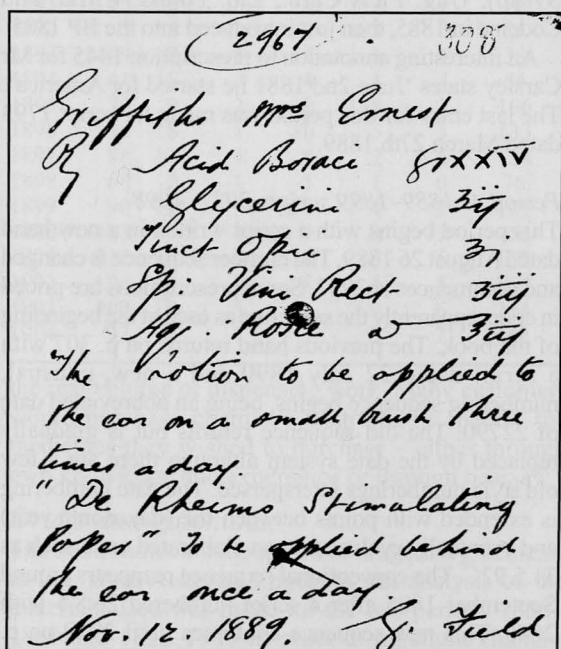 (2967
Griffiths Mrs Ernest
℞ Acid Borac grxxiv
Glycerin ʒij
Tinct Opii ʒi
Sp. Vini Rect ʒiij
Aq. Rosae ad
"The Lotion to be applied to
the ear on a small brush three
times a day.
"De Rheims Stimulating
Paper" to be applied behind
the ear once a day
Nov. 12 1889. G. Field